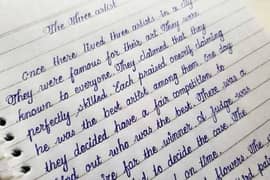 The Three artist
Once there lived three artists in a city
They were famous for their art. They were
known to everyone. They claimed that they
perfectly skilled. Each praised oneself claiming
he was the best artist among them. One day
they decided have a fair competition to
find out who was the best. There was a
for the winner. A Judge was
to decide the case. The
on time.
flowers. The